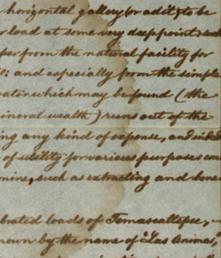 horizontal gallery (or adit) to be
load at some very deep point: such
from the natural facility for
: and especially from the simple
water which may be found (the
mineral wealth) runs out of the
ng any kind of expense, and
of utility for various purposes con
mine, such as extracting and
brated loads of Temascaltepec,
nown by the name of "Las Animas"